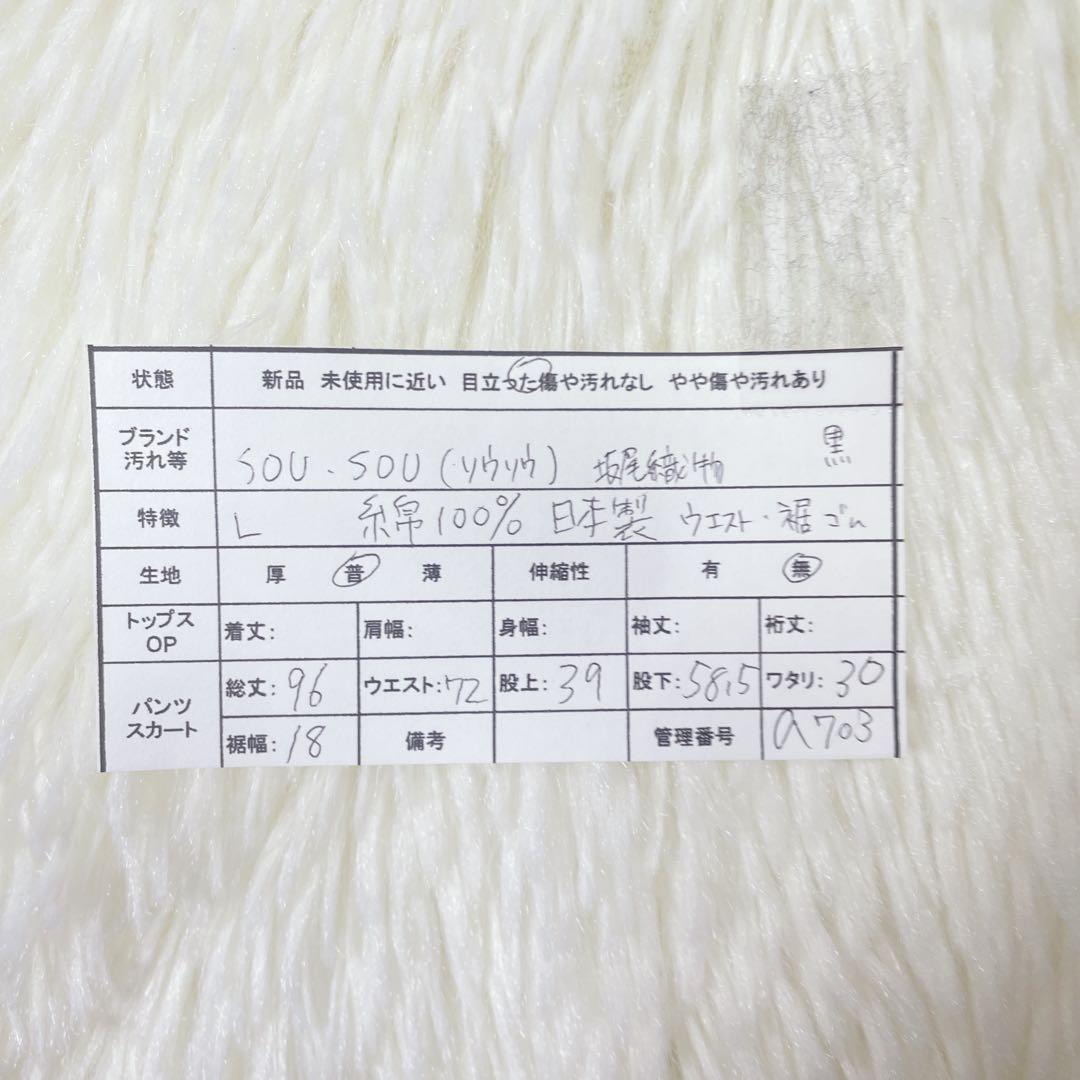 状態 新品 未使用に近い 目立った傷や汚れなし やや傷や汚れあり
ブランド
汚れ等 SOU・SOU(ソウソウ) 坂尾織物 黒
特徴 L 綿100% 日本製 ウエスト・裾ゴム
生地 厚 普 薄 伸縮性 有 無
トップス
OP 着丈: 肩幅: 身幅: 袖丈: 裄丈:
パンツ
スカート 総丈:96 ウエスト:72 股上:39 股下:58.5 ワタリ:30
裾幅:18 備考 管理番号 a703